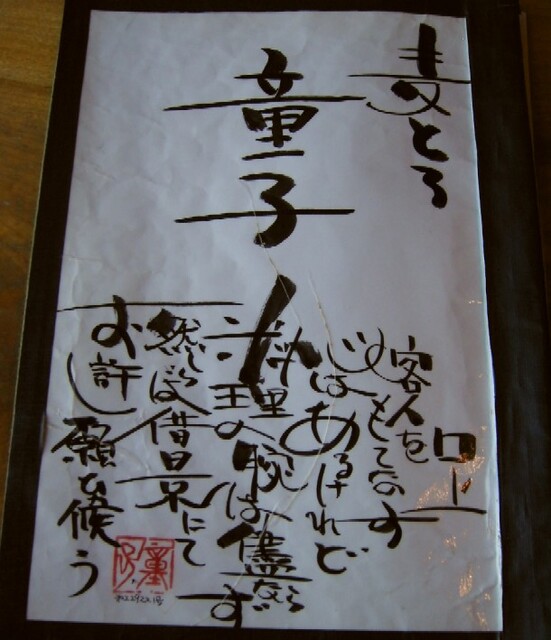 麦とろ
童子
口上
客人を
もてなす
心はあるけれど
料理の腕は儘ならず
然らば借景にて
お許し
願ひ候う